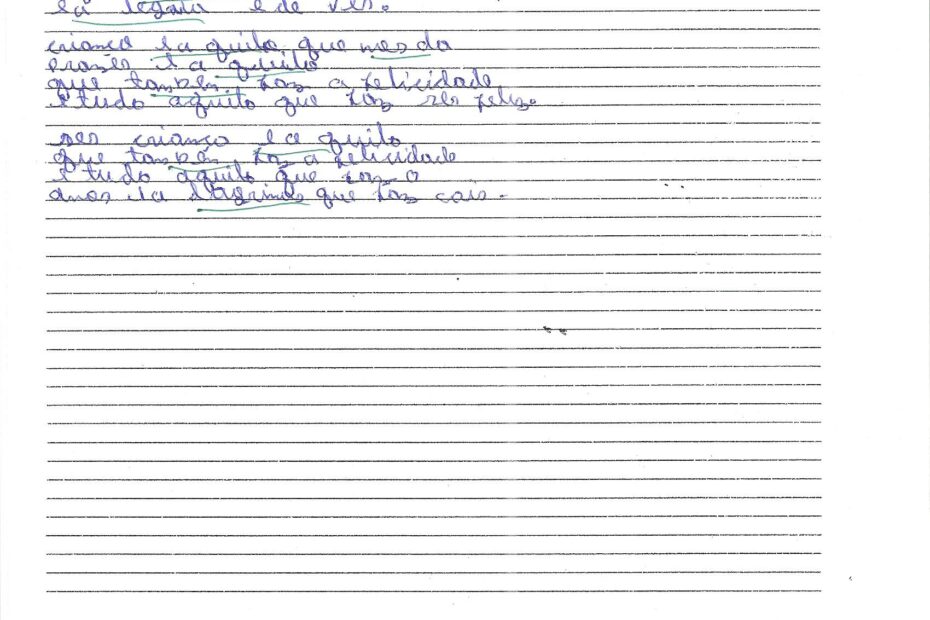 e a legria e de ver.
criança e a quilo que nos da
prazer e a quilo
que tanben faz a felicidade
e tudo aquilo que faz ser feliz.
ser criança e a quilo
que tanben faz a felicidade
e tudo aquilo que faz o
anos e a lagrimas que faz cair.